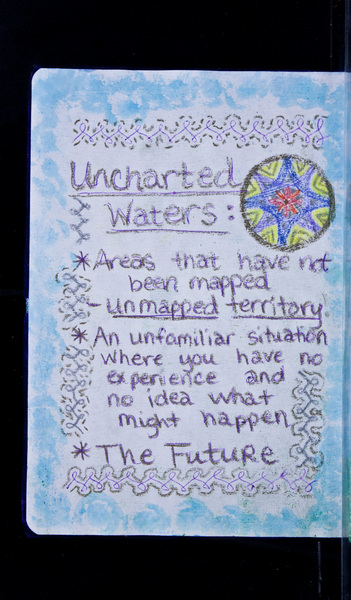 Uncharted
Waters:
* Areas that have not
been mapped
- unmapped territory
* An unfamiliar situation
where you have no
experience and
no idea what
might happen
* The Future